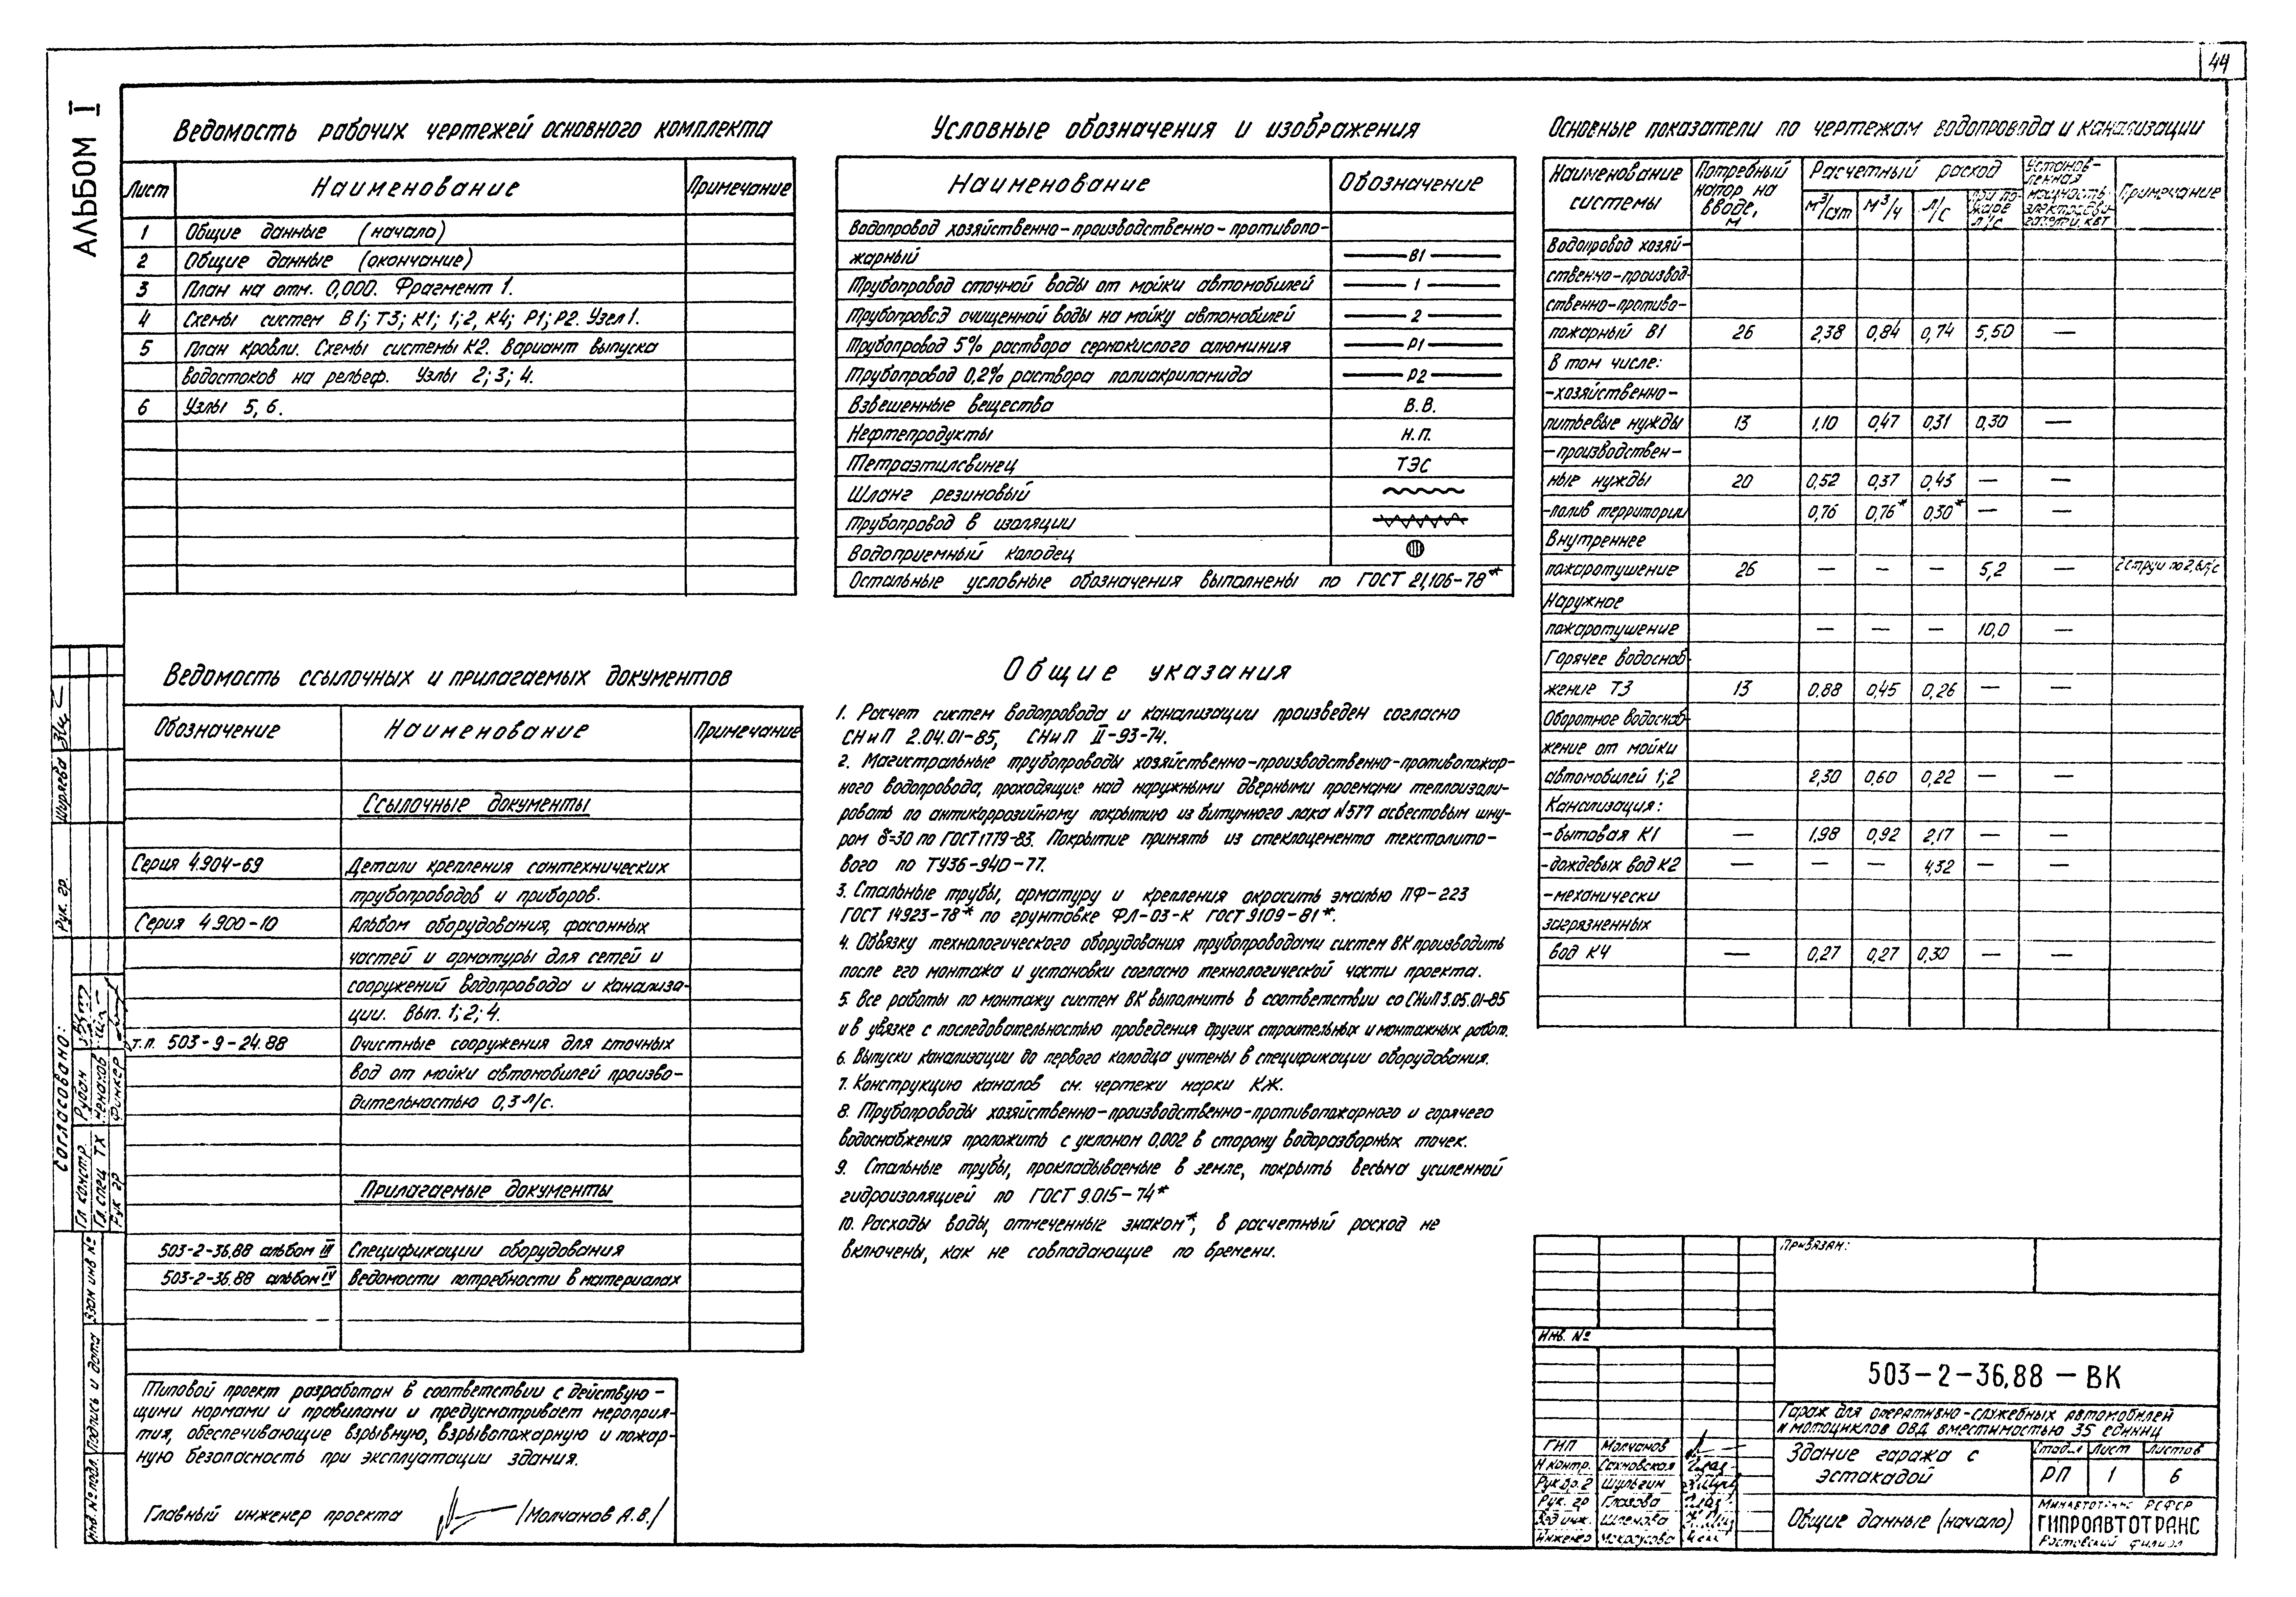 44
АЛЬБОМ I
Ведомость рабочих чертежей основного комплекта
Лист Наименование Примечание
1 Общие данные (начало)
2 Общие данные (окончание)
3 План на отм. 0,000. Фрагмент 1.
4 Схемы систем В1; Т3; К1; 1;2, К4; Р1; Р2. Узел 1.
5 План кровли. Схемы системы К2. Вариант выпуска
водостоков на рельеф. Узлы 2; 3; 4.
6 Узлы 5, 6.
Ведомость ссылочных и прилагаемых документов
Обозначение Наименование Примечание
Ссылочные документы
Серия 4.904-69 Детали крепления сантехнических
трубопроводов и приборов.
Серия 4.900-10 Альбом оборудования, фасонных
частей и арматуры для сетей и
сооружений водопровода и канализа-
ции. Вып. 1; 2; 4.
т.п. 503-9-24.88 Очистные сооружения для сточных
вод от мойки автомобилей произво-
дительностью 0,3 л/с.
Прилагаемые документы
503-2-36.88 альбом III Спецификации оборудования
503-2-36.88 альбом IV Ведомости потребности в материалах
Типовой проект разработан в соответствии с действую-
щими нормами и правилами и предусматривает мероприя-
тия, обеспечивающие взрывную, взрывопожарную и пожар-
ную безопасность при эксплуатации здания.
Главный инженер проекта /Молчанов А.В./
Условные обозначения и изображения
Наименование Обозначение
Водопровод хозяйственно-производственно-противопо-
жарный В1
Трубопровод сточной воды от мойки автомобилей 1
Трубопровод очищенной воды на мойку автомобилей 2
Трубопровод 5% раствора сернокислого алюминия Р1
Трубопровод 0,2% раствора полиакриламида Р2
Взвешенные вещества В.В.
Нефтепродукты Н.П.
Тетраэтилсвинец ТЭС
Шланг резиновый
Трубопровод в изоляции
Водоприемный колодец
Остальные условные обозначения выполнены по ГОСТ 21.106-78*
Общие указания
1. Расчет систем водопровода и канализации произведен согласно
СНиП 2.04.01-85, СНиП II-93-74.
2. Магистральные трубопроводы хозяйственно-производственно-противопожар-
ного водопровода, проходящие над наружными дверными проемами теплоизоли-
ровать по антикоррозийному покрытию из битумного лака №577 асбестовым шну-
ром δ=30 по ГОСТ 1779-83. Покрытие принять из стеклоцемента текстолито-
вого по ТУ36-940-77.
3. Стальные трубы, арматуру и крепления окрасить эмалью ПФ-223
ГОСТ 14923-78* по грунтовке ФЛ-03-К ГОСТ 9109-81*.
4. Обвязку технологического оборудования трубопроводами систем ВК производить
после его монтажа и установки согласно технологической части проекта.
5. Все работы по монтажу систем ВК выполнить в соответствии со СНиП 3.05.01-85
и в увязке с последовательностью проведения других строительных и монтажных работ.
6. Выпуски канализации до первого колодца учтены в спецификации оборудования.
7. Конструкцию каналов см. чертежи марки КЖ.
8. Трубопроводы хозяйственно-производственно-противопожарного и горячего
водоснабжения проложить с уклоном 0,002 в сторону водоразборных точек.
9. Стальные трубы, прокладываемые в земле, покрыть весьма усиленной
гидроизоляцией по ГОСТ 9.015-74*
10. Расходы воды, отмеченные знаком*, в расчетный расход не
включены, как не совпадающие по времени.
Основные показатели по чертежам водопровода и канализации
Наименование системы Потребный напор на вводе, м Расчетный расход м³/сут м³/ч л/с при пожаре л/с Установленная мощность электродвигателя, кВт Примечание
Водопровод хозяй-
ственно-производ-
ственно-противо-
пожарный В1 26 2,38 0,84 0,74 5,50 —
В том числе:
-хозяйственно-
питьевые нужды 13 1,10 0,47 0,31 0,30 —
-производствен-
ные нужды 20 0,52 0,37 0,43 — —
-полив территории 0,76 0,76* 0,30* — —
Внутреннее
пожаротушение 26 — — — 5,2 — 2 струи по 2,6 л/с
Наружное
пожаротушение — — — 10,0 —
Горячее водоснаб-
жение Т3 13 0,88 0,45 0,26 — —
Оборотное водоснаб-
жение от мойки
автомобилей 1;2 2,30 0,60 0,22 — —
Канализация:
-бытовая К1 — 1,98 0,92 2,17 — —
-дождевых вод К2 — — — 4,32 — —
-механически
загрязненных
вод К4 — 0,27 0,27 0,30 — —
Привязан:
Инв. №
503-2-36.88 - ВК
Гараж для оперативно-служебных автомобилей
и мотоциклов ОВД вместимостью 35 единиц
Здание гаража с
эстакадой
Стадия Лист Листов
РП 1 6
Общие данные (начало)
Минавтотранс РСФСР
ГИПРОАВТОТРАНС
Ростовский филиал
ГИП Молчанов
Н.контр. Сахновская
Рук.бр.2 Шульгин
Рук. гр Глазова
Инженер
Согласовано:
Гл. констр. Рубан
Гл. спец ТХ
Рук гр Финкер
Рук. гр. Ширяева
Взам инв №
Подпись и дата
Инв. № подл.